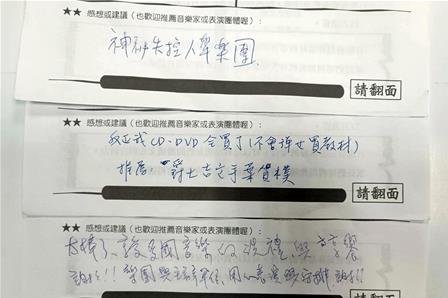 ★★ 感想或建議（也歡迎推薦音樂家或表演團體喔）：
神秘失控人聲樂團
請翻面
★★ 感想或建議（也歡迎推薦音樂家或表演團體喔）：
我 CD、DVD 全買了（不會 買教材）
推薦：爵士吉他手葉賀樸
請翻面
★★ 感想或建議（也歡迎推薦音樂家或表演團體喔）：
太棒了、 音樂的洗禮與
謝謝！！樂團與 用心 與安排 謝謝
請翻面